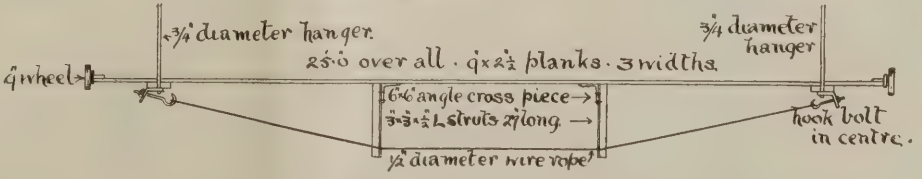 3/4" diameter hanger.
3/4" diameter
hanger
25'.0" over all . 9" x 2 1/2" planks . 3 widths
9" wheel
6"x6" angle cross piece
3"x3"x1/2" L struts 27" long.
hook bolt
in centre.
1/2" diameter wire rope